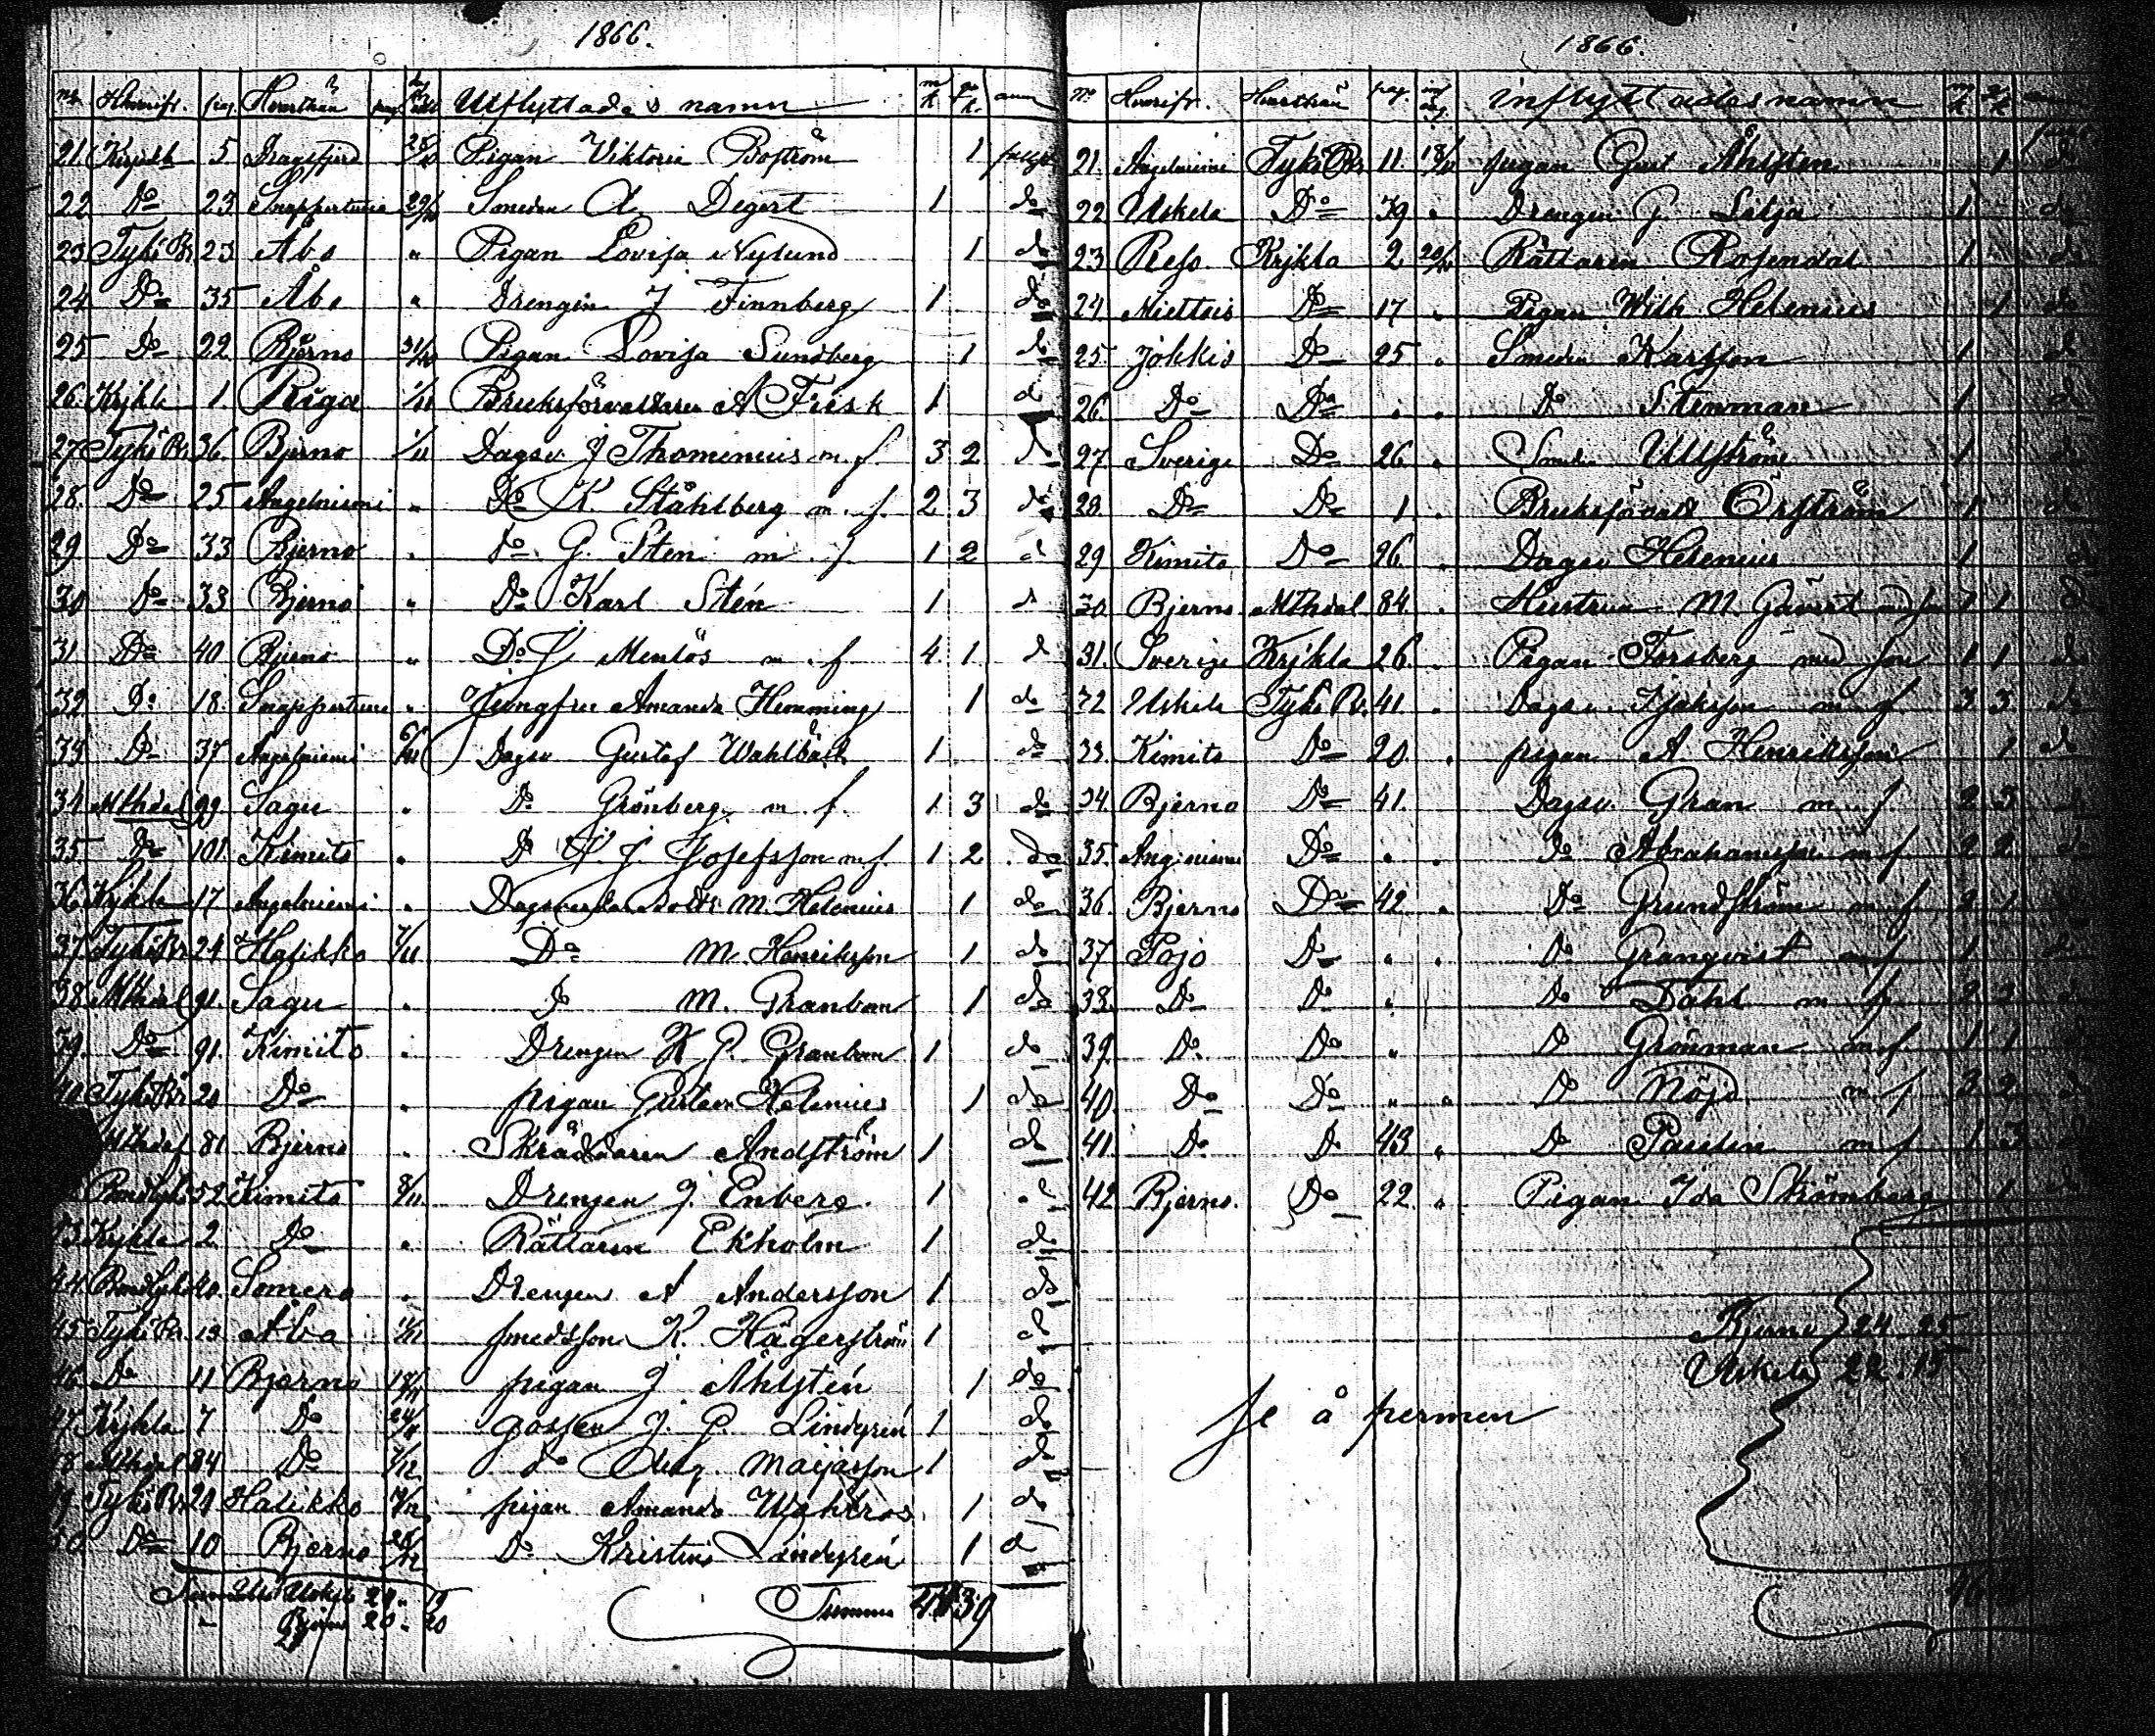 1866.
No Hvarifr. pag. Hvarthän pag. Utflyttades namn m k qv k. anm
21 Krjkla 5 Dragsfjerd 25/10 Pigan Viktoria Boström 1
22 Do 23 Snappertuna 29/10 Smeden A. Degert 1 do
23 Tykö Br 23 Åbo " Pigan Lovisa Nylund 1 do
24 Do 35 Åbo " Drengen J Finnberg 1 do
25 Do 22 Bjerno 31/10 Pigan Lovisa Sundberg 1 do
26. Krjkla 1. Riga 1/11 Bruksförvaltaren A Frisk 1 d
27 Tykö Br 36. Bjerno 1/11 Dagsv J Thomenius m. f. 3 2 do
28. Do 25 Angelniemi " Do K. Ståhlberg m. f. 2 3 do
29 Do 33 Bjerno " do G. Sten m. f. 1 2 d
30 Do 33 Bjerno " Do Karl Stén 1 d
31 Do 40 Bjerno " Do J Menlös m. f 4 1 d
32 Do 18. Snappertuna " Jungfru Amanda Hemming 1 do
33 Do 37 Angelniemi 6/11 Dagsv Gustaf Wahlbäck 1 do
34 Mthdal 99 Sagu " Do Grönberg m. f. 1 3 do
35 Do 101 Kimito " Do K. J. Josefsson m. f. 1 2 do
36 Krjkla 17 Angelniemi " M. Helenius 1 do
37 Tykö Br 24 Halikko 7/11 Do M. Henriksson 1 do
38 Mthdal 91. Sagu " Do M. Granbom 1 do
39. Do 91. Kimito " Drengen K G. Granbom 1 do
40 Tykö Br 20 Do " pigan Gustava Helenius 1 do
Mthdal 81 Bjerno " Skräddaren Andström 1 do
52 Kimito 8/11. Drengen J. Enberg 1
43 Krjkla 2 Do " Rättaren Ekholm 1 do
44 Somero " Drengen A Andersson 1 do
45 Tykö Br. 13 Åbo smedsson K. Hägerström 1 do
46 Do 11 Bjerno 18/11 pigan J Åhlstén 1 do
47 Krjkla 7 Do 24/11 gossen J. G. Lindgrén 1 do
48 Mthdal 84 Do 7/12 do Aug. Maijasson 1 do
49 Tykö Br 29 Halikko pigan Amanda Wahlroos 1 do
50 Do 10 Bjerno Do Kristina Lindgrén 1 d
Uskela
Bjerno 20
Summa 39
1866.
No Hvarifr. Hvarthän pag. inflyttades namn m k q k
21. Angelniemi Tykö Br 11. 18/11 pigan Gust Åhlsten 1 do
22 Uskela Do 39 " Drengen G. Lilja 1 do
23 Reso Krjkla 2 Rättaren Rosendal 1 do
24. Miettois Do 17 " Pigan Wilh Helenius 1 do
25. Jokkis Do 25 " Smeden Karlsson 1 d
26. Do Do " " Do Stenman 1 d
27 Sverige Do 26 " Smeden Ullström 1 do
28. Do Do 1 " Bruksförvalt Örström 1 do
29 Kimito Do 26. " Dagsv Helenius 1 d
30 Bjerno Mthdal 84. " Hustrun M. Gåvert 1 1 d
31. Sverige Krjkla 26. " Pigan Forsberg med son 1 1 do
32 Uskela Tykö Br. 41. " Dagsv. Isaksson m f. 3 3 do
33. Kimito Do 20. " pigan A Henriksson 1 do
34. Bjerno Do 41. Dagsv. Gran m f. 2 3 d
35. Angniemi Do " " Do Abrahamsson m f. 2 2 do
36. Bjerno Do 42 " Do Grundström m f. 2 1
37 Pojo Do " " Do Granqvist m f 1 do
38. Do Do " Do Dahl m f 2 3 d
39. Do Do " Do Grönman m f. 1 1 d
40. Do Do " " Do Nöjd m f 3 2 d
41. Do Do 43 " Do Paulin m f 1 3 d
42. Bjerno. Do 22. " Pigan Ida Strömberg 1 do
Bjerno 24 25
Uskela 22. 15
se å permen